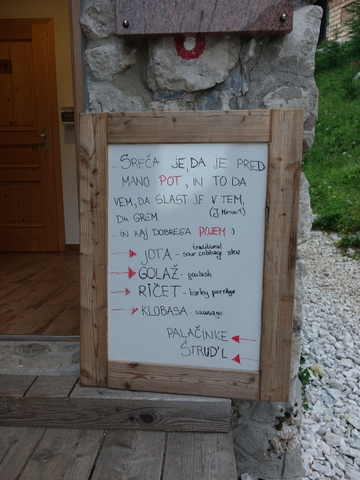 SREČA JE, DA JE PRED
MANO POT, IN TO DA
VEM, DA SLAST JE V TEM,
DA GREM.
... IN KAJ DOBREGA POJEM :)
→ JOTA - traditional sour cabbage stew
→ GOLAŽ - goulash
→ RIČET - barley porridge
→ KLOBASA - sausage
PALAČINKE ←
ŠTRUD'L ←